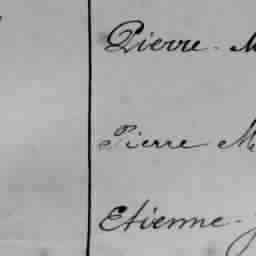 Pierre - M
Pierre M
Etienne - J